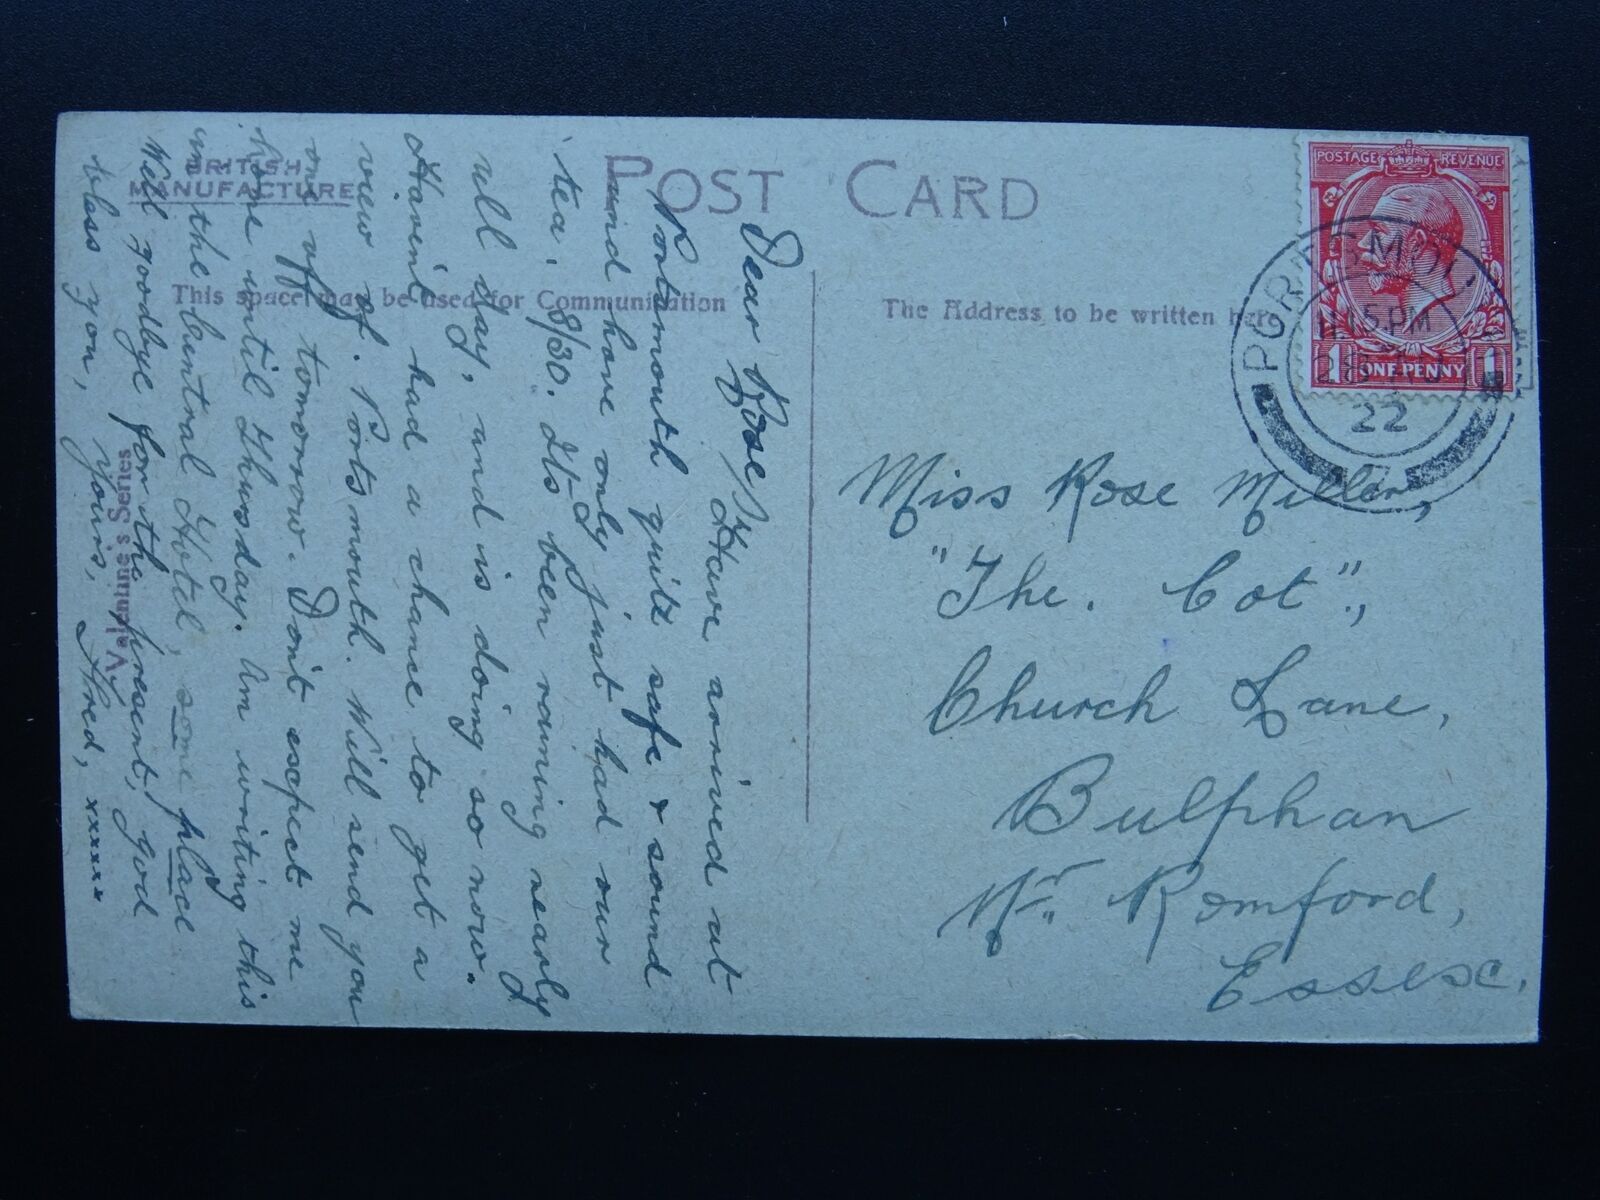 BRITISH
MANUFACTURE
POST CARD
This space may be used for Communication
The Address to be written here
Valentine's Series
POSTAGE REVENUE
1 ONE PENNY 1
PORTSMOUTH
PM
22
Dear Rose,
Have arrived at
Portsmouth quite safe & sound
and have only just had our
tea. 8/30. It's been raining nearly
all day, and is doing so now.
Havent had a chance to get a
view of Portsmouth. Will send you
one off tomorrow. Don't expect me
home until Thursday. Am writing this
in the Central Hotel, some place
Well goodbye for the present, god
bless you,
Yours, Fred, xxxxxx
Miss Rose Miller,
"The. Cot",
Church Lane,
Bulphan
Nr. Romford,
Essex.